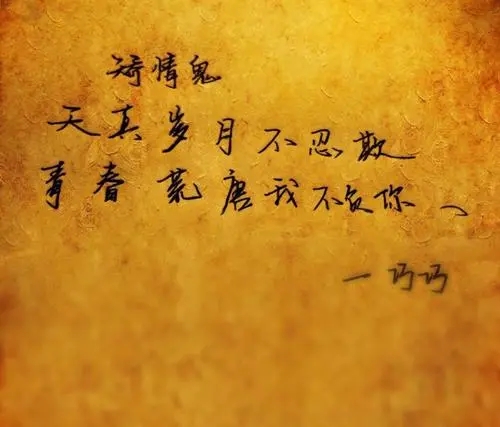 矫情鬼
天真岁月不忍欺
青春荒唐我不负你、
— 巧巧